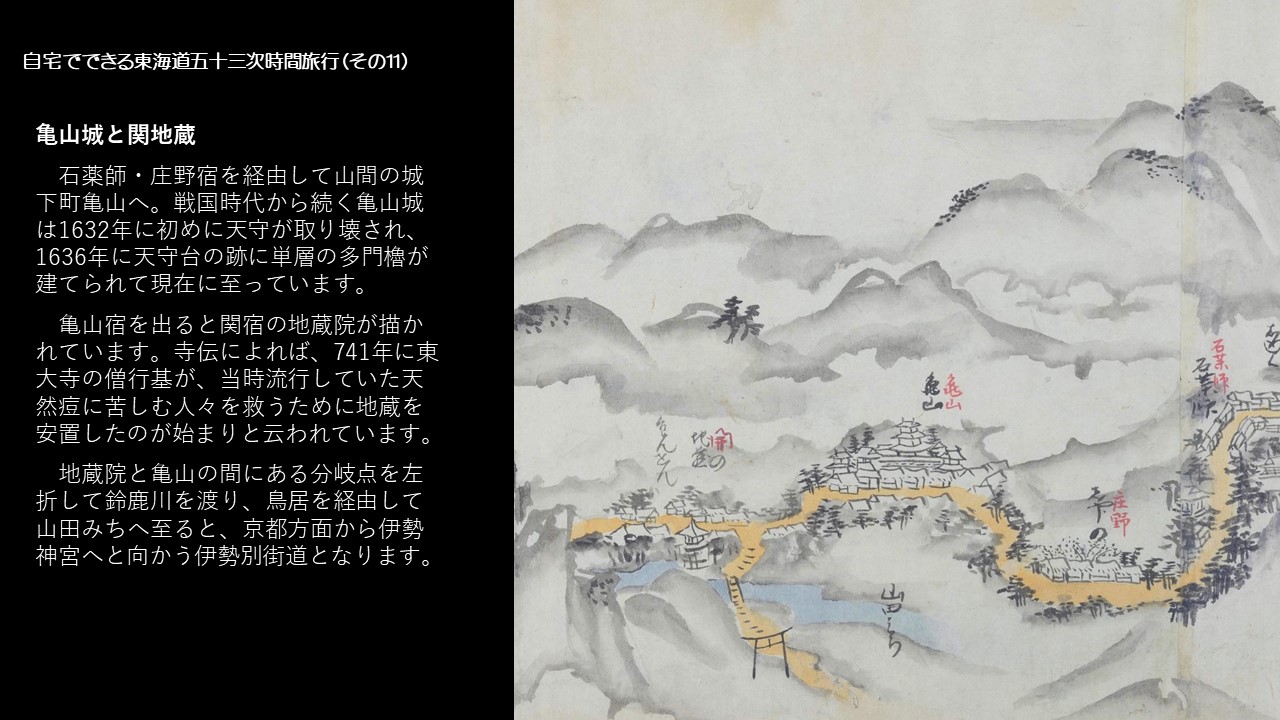 自宅でできる東海道五十三次時間旅行（その11）
亀山城と関地蔵
石薬師・庄野宿を経由して山間の城
下町亀山へ。戦国時代から続く亀山城
は1632年に初めに天守が取り壊され、
1636年に天守台の跡に単層の多門櫓が
建てられて現在に至っています。
亀山宿を出ると関宿の地蔵院が描か
れています。寺伝によれば、741年に東
大寺の僧行基が、当時流行していた天
然痘に苦しむ人々を救うために地蔵を
安置したのが始まりと云われています。
地蔵院と亀山の間にある分岐点を左
折して鈴鹿川を渡り、鳥居を経由して
山田みちへ至ると、京都方面から伊勢
神宮へと向かう伊勢別街道となります。
石薬師
石薬師
亀山
亀山
庄野
関の
地蔵
山田みち